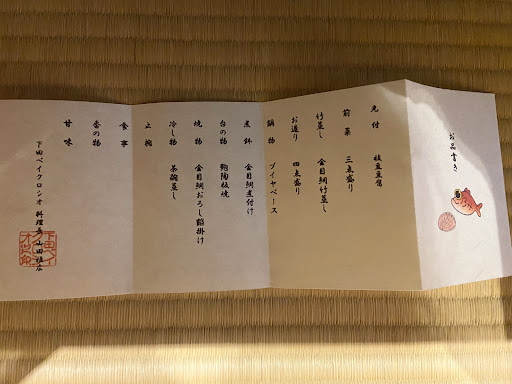 お品書き
先付 枝豆豆腐
前菜 三点盛り
竹蒸し 金目鯛竹蒸し
お造り 四点盛り
鍋物 ブイヤベース
煮鉢 金目鯛煮付け
台の物 鮑陶板焼
焼物 金目鯛おろし餡掛け
冷し物 茶碗蒸し
止椀
食事
香の物
甘味
下田ベイクロシオ 料理長 山田